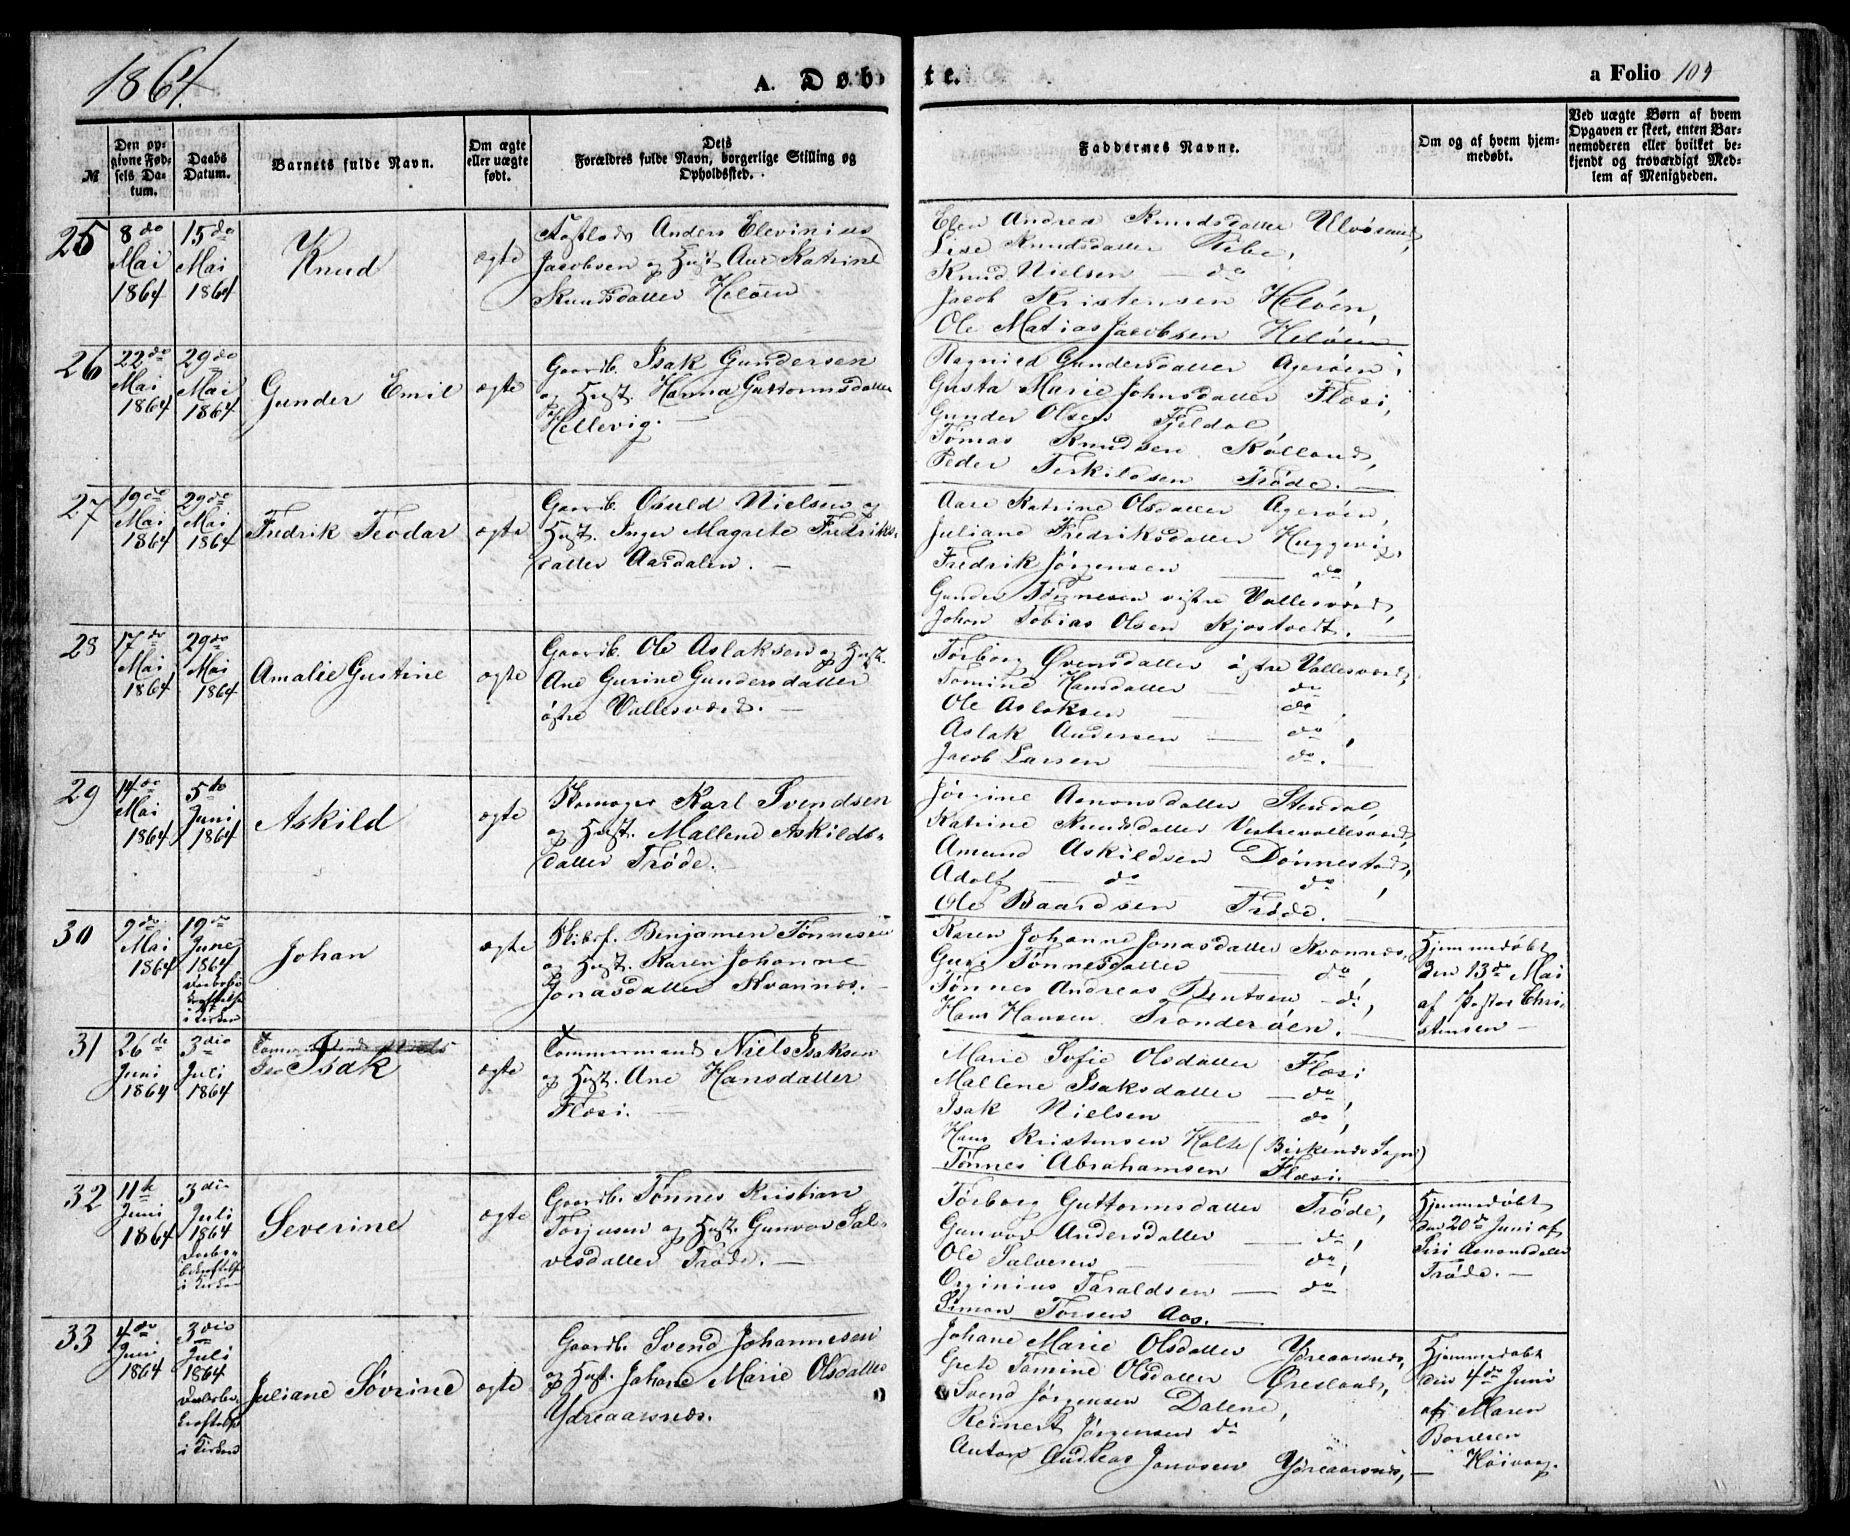 1864.
A. Døbte.
a Folio 104
№
Den opgivne Fødsels Datum.
Daabs Datum.
Barnets fulde Navn.
Om ægte eller uægte født.
Dets Forældres fulde Navn, borgerlige Stilling og Opholdssted.
Faddernes Navne.
Om og af hvem hjemmedøbt.
Ved uægte Børn af hvem Opgaven er skeet, enten Barnemoderen eller hvilket bekjendt og troværdigt Medlem af Menigheden.
25
8de Mai 1864
15de Mai 1864
Knud
ægte
Anders Elevinius
Jacobsen og Hust. Ane Katrine
Knudsdatter Heløen
Elen Andrea Knudsdatter Ulvøsund,
Lise Knudsdatter Pebe,
Knud Nielsen — do
Jacob Kristensen Heløen,
Ole Matias Jacobsen Heløen
26
22de Mai 1864
29de Mai 1864
Gunder Emil
ægte
Gaardb. Isak Gundersen
og Hust. Hanna Guttormsdatter
Hellevig. —
Ragnild Gundersdatter Agerøen,
Gusta Marie Johnsdatter Fløsi,
Gunder Olsen Fjeldal
Tomas Knudsen Kølland,
Peder Terkildsen Trøde. —
27
19de Mai 1864
29de Mai 1864
Fredrik Teodor
ægte
Gaardb. Osuld Nielsen og
Hust. Inger Magrete Fredriks-
datter Aasdalen. —
Aase Katrine Olsdatter Agerøen,
Juliane Fredriksdatter Huggevig,
Fredrik Jørgensen — do,
Gunder Tønnesen vestre Vallesværd,
Johan Tobias Olsen Kjøstvedt. —
28
17de Mai 1864
29de Mai 1864
Amalie Gustine
ægte
Gaardb. Ole Aslaksen og Hust.
Ane Gurine Gundersdatter
østre Vallesværd. —
Torborg Øvensdatter østre Vallesværd,
Tomine Hansdatter — do
Ole Aslaksen — do,
Aslak Andersen — do,
Jacob Larsen — do.
29
14de Mai 1864
5te Juni 1864
Askild
ægte
Skomager Karl Svendsen
og Hust. Mallene Askilds-
datter Trøde. —
Jørgine Aanonsdatter Stendal,
Katrine Knudsdatter Vestrevallesværd,
Amund Askildsen Dønnestad,
Adolf — do — do,
Ole Baardsen Trøde. —
30
9de Mai 1864
19de June 1864
i Kirken
Johan
ægte
Benjamen Tønnesen
og Hust. Karen Johanne
Jonasdatter Kvannes. —
Karen Johanne Jonasdatter Kvannes,
Guri Tønnesdatter — do,
Tønnes Andreas Bentsen — do,
Hans Hansen Trønderøen. —
Hjemmedøbt
den 13de Mai
af Pastor Chri-
stensen —
31
26de Juni 1864
3die Juli 1864
Isak
ægte
Tømmermand Niels Isaksen
og Hust. Ane Hansdatter
Fløsi. —
Marie Sofie Olsdatter Fløsi
Mallene Isaksdatter — do,
Isak Nielsen do,
Hans Kristensen Holte (Birkenes Sogn)
Tønnes Abrahamsen Fløsi. —
32
11te Juni 1864
3die Juli 1864
i Kirken
Severine
ægte
Gaardb. Tønnes Kristian
Torjusen og Hust. Gunvor Sal-
vesdatter Trøde. —
Torborg Guttormsdatter Trøde,
Gunvor Andersdatter — do,
Ole Salvesen — do,
Orginius Taraldsen — do
Simon Torsen Aas. —
Hjemmedøbt
den 20de Juni af
Siri Aanonsdatter
Trøde. —
33
4de Juni 1864
3die Juli 1864
i Kirken
Juliane Søvrine
ægte
Gaardb. Svend Johannesen
og Hust. Johane Marie Olsdatter
Ydreaarsnes.
Johane Marie Olsdatter Ydreaarsnes,
Grete Tomine Olsdatter Øresland,
Svend Jørgensen Dalene,
Reinert Jørgensen do
Anton Andreas Jonsen Ydreaarsnes, —
Hjemmedøbt
den 4de Juni
af Maren
Høivaag.